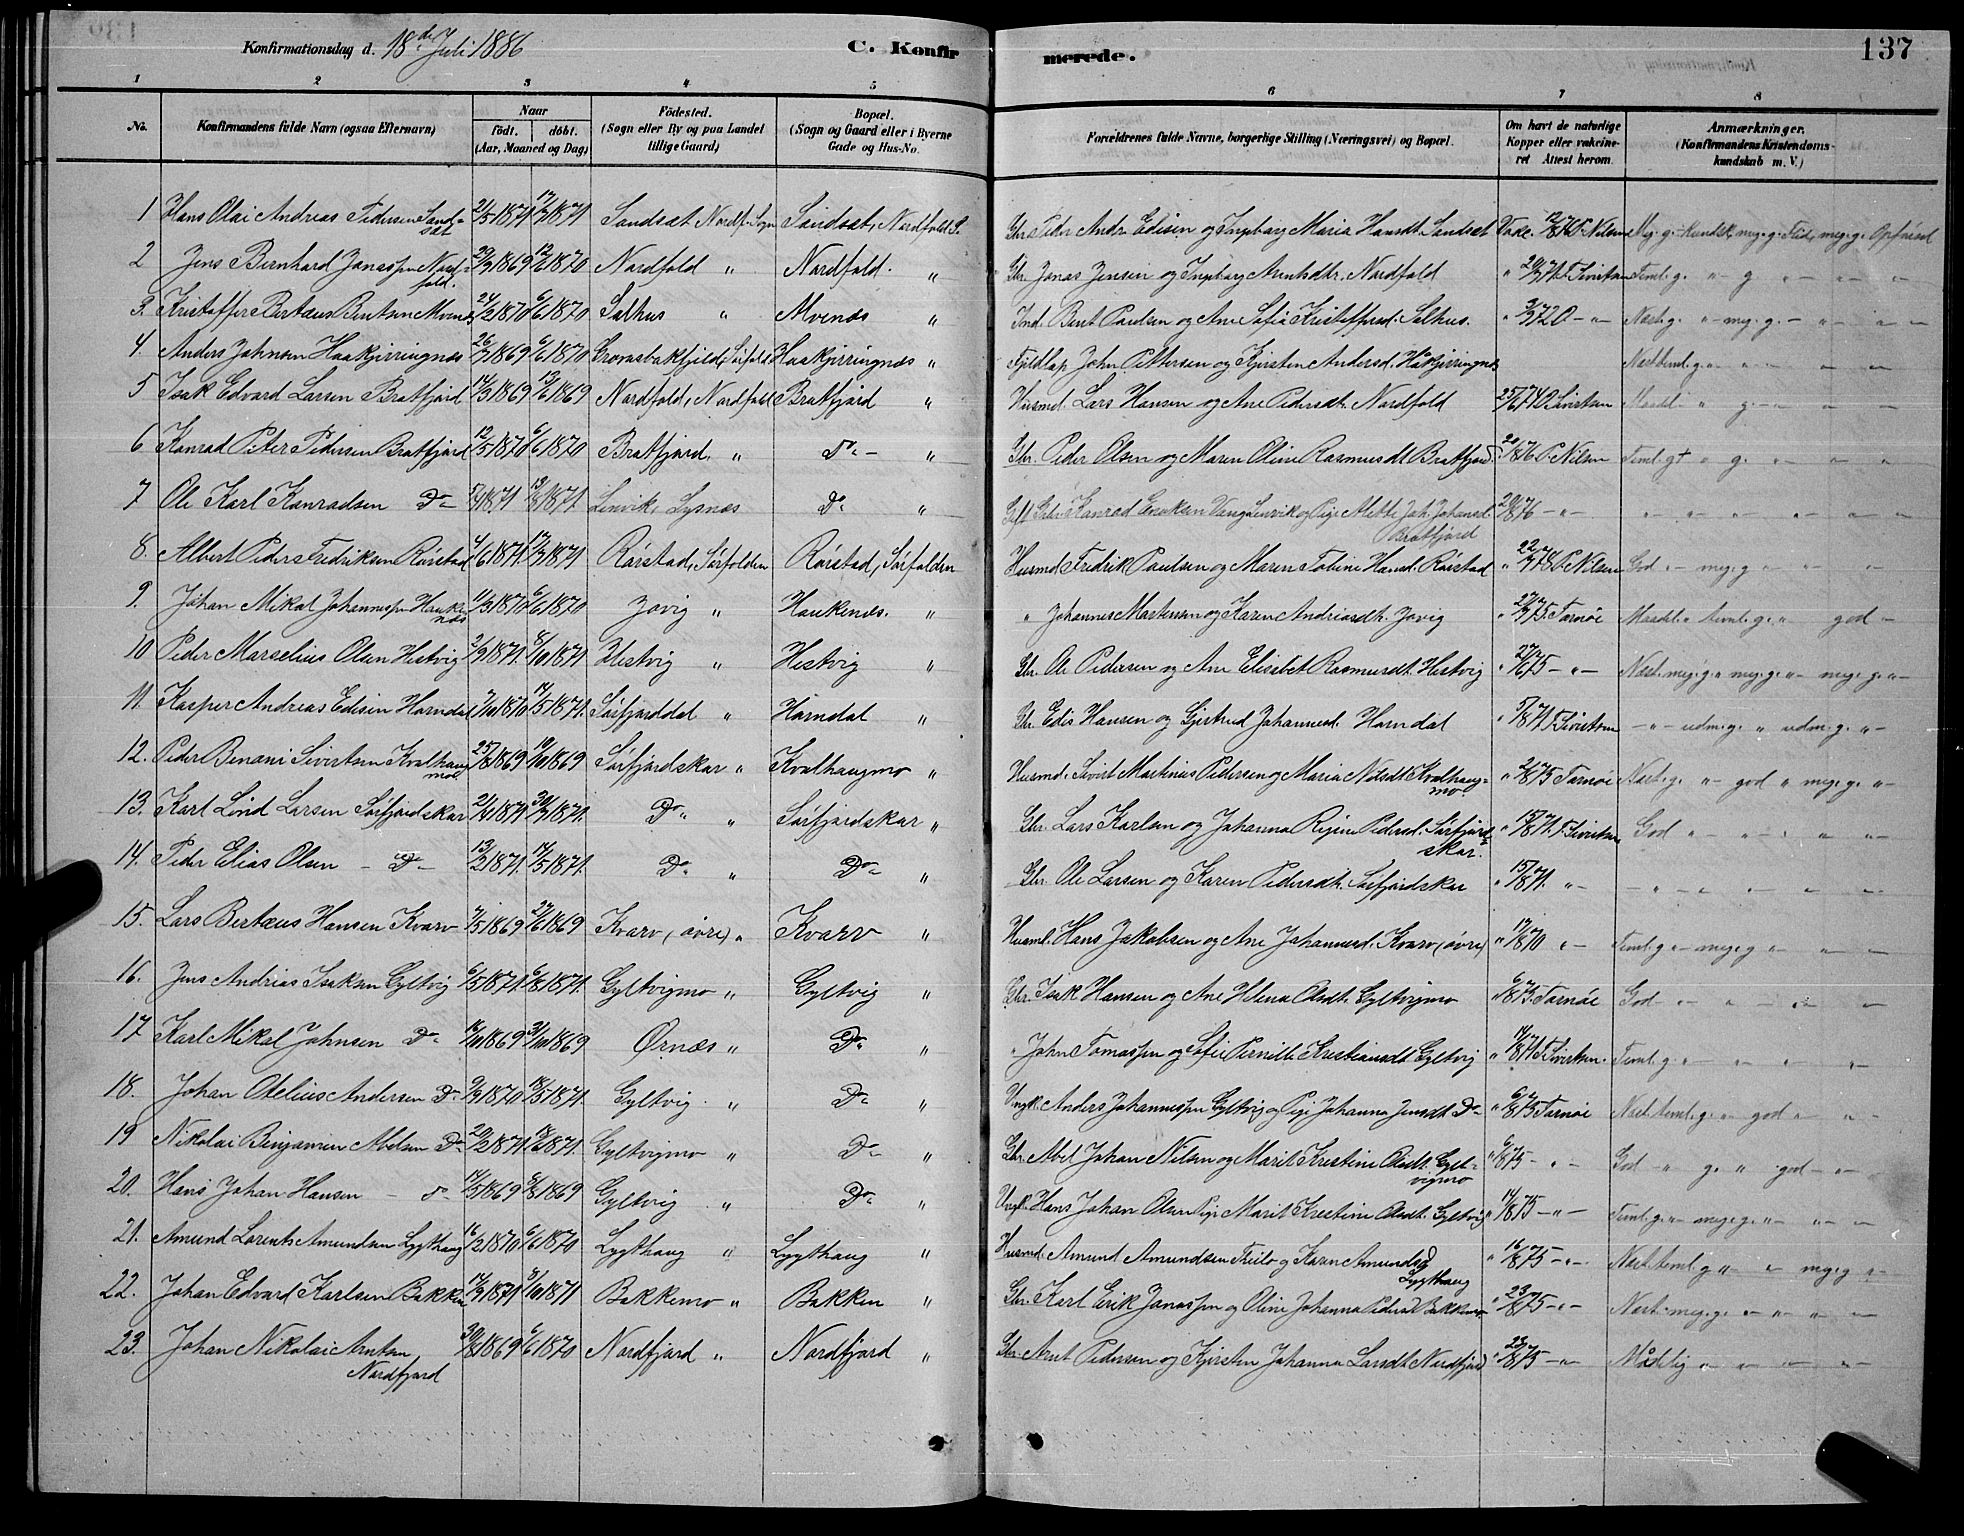 Konfirmationsdag d. 18de Juli 1886 C. Konfirmerede. 137
1 2 3 4 5 6 7 8
No. Konfirmandens fulde Navn (ogsaa Efternavn) Naar født. døbt. (Aar, Maaned og Dag) Fødested. (Sogn eller By og paa Landet tillige Gaard) Bopæl. (Sogn og Gaard eller i Byerne Gade og Hus-No. Forældrenes fulde Navne, borgerlige Stilling (Næringsvei) og Bopæl. Om havt de naturlige Kopper eller vakcineret Attest herom. Anmærkninger. (Konfirmandens Kristendomskundskab m. V.)
1 Hans Olai Andreas Pedersen Sandsæt 2/5 1871 17/7 1871 Sandsæt Nordf. Sogn Sandsæt, Nordfold S. Gbr. Peder Andr. Edisen og Ingeborg Maria Hansdt. Sandset Vakc. 12/8 76 P. Nilsen Meg. g. Kundsk. meg. g. Flid, meg. g. Opførsel
2 Jens Bernhard Jonassen Nordfold. 29/9 1869 12/6 1870 Nordfold " Nordfold. " Gbr. Jonas Jensen og Ingeborg Arntsdtr. Nordfold " 20/7 71 F. Sivertsen Teml. g. " g. " "
3. Kristoffer Bertæus Bentsen Mvenes 24/2 1870 6/6 1870 Salhus " Mvenæs " Ind. Bent Paulsen og Ane Sofia Kristoffersd. Salhus. " 3/9 72 O - " - Næst. g. " meg. g. " "
4. Anders Johnsen Haakjerringnæs 26/7 1869 6/6 1870 Haakjerringnæs " Fjeldlap John Pettersen og Kjersten Andersd. Haakjerringnes Næst teml. g. " " "
5 Isak Edvard Larsen Bratfjord 14/3 1869 13/6 1869 Nordfold, Nordfold Bratfjord " Husmd. Lars Hansen og Ane Pedersdt. Nordfold 25/6 74 O. Sivertsen Maadel. " g. " "
6 Konrad Peter Pedersen Bratfjord 12/5 1870 6/6 1870 Bratfjord. " Do - " Gbr. Peder Olsen og Maren Oline Rasmusdt. Bratfjord. 20/8 76 P. Nilsen Teml. g. + " g. " "
7 Ole Karl Konradsen Do 5/4 1871 13/8 1871 Lenvik, Lysnæs Do " Gift Gbr. Konrad Eriksen Vang Lenvik og Pige Mette Joh. Johansd. Bratfjord 20/8 76 - " - " " " "
8. Albert Peder Fredriksen Rørstad 4/6 1871 17/7 1871 Rørstad, Sørfolden Rørstad, Sørfolden Husmd. Fredrik Paulsen og Maren Tobine Hansd. Rørstad " 22/7 78 P. Nilsen God " meg. g. " "
9. Johan Mikal Johannessen Haukenæs 11/3 1870 6/6 1870 Jovig " Haukenæs. " " Johannes Martensen og Karen Andreasdt. Jovig " 27/7 75 Tarnøe Maadel. " teml. g. " god "
10 Peder Marselius Olsen Hestvig 2/9 1871. 8/10 1871 Hestvig " Hestvig " Gbr. Ole Pedersen og Ane Elisabet Rasmusdt. Hestvig " 27/6 75 - " - Næst. meg. g. " meg. g. " meg. g. "
11. Kasper Andreas Edisen Horndal 7/10 1870 14/5 1871. Sørfjorddal " Horndal " Gbr. Edis Hansen og Gjertrud Johannesd. Horndal " 5/8 71 F. Sivertsen - " - udm. g. " udm. g. "
12. Peder Benoni Sivertsen Kvalhaugmoe 25/8 1869 10/10 1869 Sørfjordskar " Kvalhaugmo " Husmd. Sivert Martinus Pedersen og Maria Nilsdt. Kvalhaugmo " 2/8 75 Tarnøe Næst. g. " god " meg. g. "
13. Karl Lind Larsen Sørfjordskar 30/7 1871. Do " Sørfjordskar " Gbr. Lars Karlsen og Johanna Regine Pedersd. Sørfjordskar. " 15/8 71. F. Sivertsen God " " " "
14. Peder Elias Olsen - Do 13/3 1871. 14/5 1871. Do " Do " Gbr. Ole Larsen og Karen Pedersdt. Sørfjordskar " 15/8 71. " - - " - " " "
15. Lars Bertæus Hansen Kvarv 7/5 1869 27/6 1869 Kvarv (øvre) " Kvarv " Husmd. Hans Jakobsen og Ane Johannesd. Kvarv (øvre) " 17/8 70 " - Teml. g. " meg. g. " "
16. Jens Andreas Isaksen Gyltvig 6/5 1871. 6/8 1871. Gyltvigmo " Gyltvig " Gbr. Isak Hansen og Ane Helena Olsdt. Gyltvigmo " 6/8 75. Tarnøe God " " " "
17 Karl Mikal Johnsen Do 16/10 1869 31/10 1869 Ørnæs " Do " " John Tomassen og Sofie Pernille Kristiansdt. Gyltvig " 14/8 71 F. Sivertsen. Teml. g. " " " "
18. Johan Otelius Andersen Do 9/9 1870 18/5 1871. Gyltvig " Do " Ungk. Anders Johannessen Gyltvig og Pige Johanna Jensdt. Do " 6/8 75 Tarnøe Næst. teml. g. " god " "
19 Nikolai Benjamin Abelsen Do 20/2 1871. 18/6 1871. Gyltvigmo " Do " Gbr. Abel Johan Nilsen og Marit Kristine Olsdt. Gyltvigmo " 6/8 75 - " - God " g. " god "
20. Hans Johan Hansen - Do 14/5 1869 8/8 1869 Gyltvig " Do " Ungk. Hans Johan Olsen Pige Marit Kristine Olsdt. Gyltvig " 14/8 75 - " - Teml. g. " meg. g. " "
21. Amund Lorents Amundsen Lygthaug 16/2 1870 6/6 1870 Lygthaug " Lygthaug " Husmd. Amund Amundsen og Karen Amundsd. Lygthaug " 16/8 75 - " - Næst teml. g. " " meg. g. "
22. Johan Edvard Karlsen Bakken 17/9 1871 8/10 1871 Bakkemo " Bakken " Gbr. Karl Erik Jonassen og Oline Johanna Pedersd. Bakkemo " 23/8 75 - " - Næst. meg. g. " " "
23. Johan Nikolai Arntsen Nordfjord 30/8 1869 6/6 1870 Nordfjord " Nordfjord " Gbr. Arnt Pedersen og Kjersten Johanna Larsdt. Nordfjord " 23/8 75 - " - Mådelig " " " "